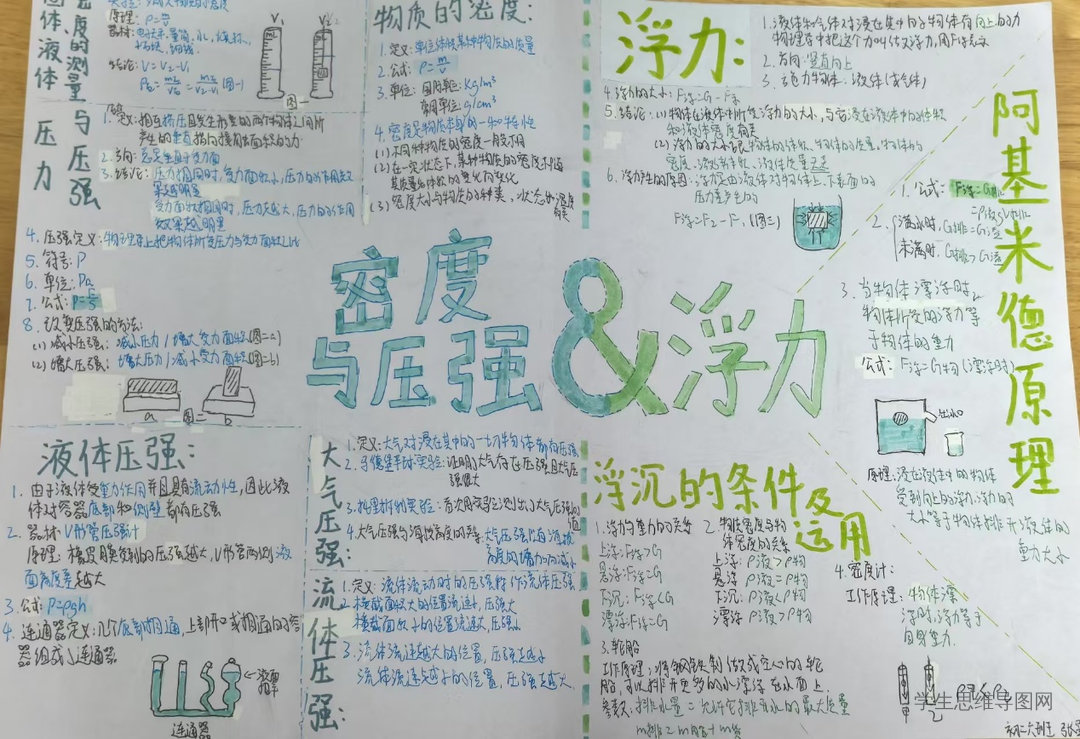 密度的测量与压强
固体液体压力
原理: ρ=m/V
器材:
结论: V=V2-V1
图一
V1
V2
定义: 相互挤压且发生形变的两个物体之间所
产生的垂直指向接触面积的力
3. 结论: 压力相同时, 受力面积小, 压力的作用
效果越明显
受力面积相同时, 压力越大, 压力的作用
效果越明显
4. 压强定义: 物理学上把物体所受压力与受力面积之比
5. 符号: P
6. 单位: Pa
7. 公式: P=F/S
8. 改变压强的方法:
(1) 减小压强: 减小压力/增大受力面积(图二a)
(2) 增大压强: 增大压力/减小受力面积(图二b)
a 图二 b
物质的密度:
1. 定义: 单位体积某种物质的质量
2. 公式: ρ=m/V
3. 单位: 国际单位: kg/m³
常用单位: g/cm³
4. 密度是物质本身的一种特性
(1) 不同种物质的密度一般不同
(2) 在一定状态下, 某种物质的密度不随
其质量和体积的变化而变化
(3) 密度大小与物质的种类, 状态和温度
有关
浮力:
1. 液体和气体对浸在其中的物体有向上的力
物理学中把这个力叫做浮力, 用F浮表示
2. 方向: 竖直向上
3. 施力物体: 液体(或气体)
4. 浮力的大小: F浮=G-F
5. 结论: (1) 物体在液体中所受浮力的大小, 与它浸在液体中的体积
和液体密度有关
(2) 浮力的大小跟物体的体积、物体的质量、物体的
密度、
6. 浮力产生的原因: 浮力是由液体对物体上、下表面的
压力差产生的
F浮=F2-F1 (图二)
阿基米德原理
1. 公式: F浮=G排
=ρ液gV排
2. 满水时, G排=G溢
未满时, G排>G溢
3. 当物体漂浮时,
物体所受的浮力等
于物体的重力
公式: F浮=G物 (漂浮时)
原理: 浸在液体中的物体
受到向上的浮力, 浮力的
大小等于物体排开液体的
重力大小
密度与压强&浮力
液体压强:
1. 由于液体受重力作用并且具有流动性, 因此液
体对容器底部和侧壁都有压强
2. 器材: U形管压强计
原理: 橡皮膜受到的压强越大, U形管两侧液
面高度差越大
3. 公式: P=ρgh
4. 连通器定义: 几个底部相通, 上部开口或相通的容
器组成了连通器
连通器
大气压强:
1. 定义: 大气对浸在其中的一切物体都有压强
2. 马德堡半球实验: 证明大气存在压强且大气压
强很大
3. 托里拆利实验: 首次用实验测出了大气压强的
值
4. 大气压强与海拔高度的关系: 大气压强随海拔
高度的增加而减小
流体压强:
1. 定义: 流体流动时的压强称作流体压强
2. 横截面积大的位置流速小, 压强大
横截面积小的位置流速大, 压强小
3. 流体流速越大的位置, 压强越小
流体流速越小的位置, 压强越大
浮沉的条件及运用
1. 浮力与重力的关系
上浮: F浮>G
悬浮: F浮=G
下沉: F浮<G
漂浮: F浮=G
2. 物质密度与物
体密度的关系
上浮: ρ液>ρ物
悬浮: ρ液=ρ物
下沉: ρ液<ρ物
漂浮: ρ液>ρ物
3. 轮船
工作原理: 将钢铁制做成空心的轮
船, 可以排开更多的水漂浮在水面上
排水量=
m排=m船+m货
4. 密度计:
工作原理: 物体漂
浮时, 浮力等于
自身重力
学生思维导图网